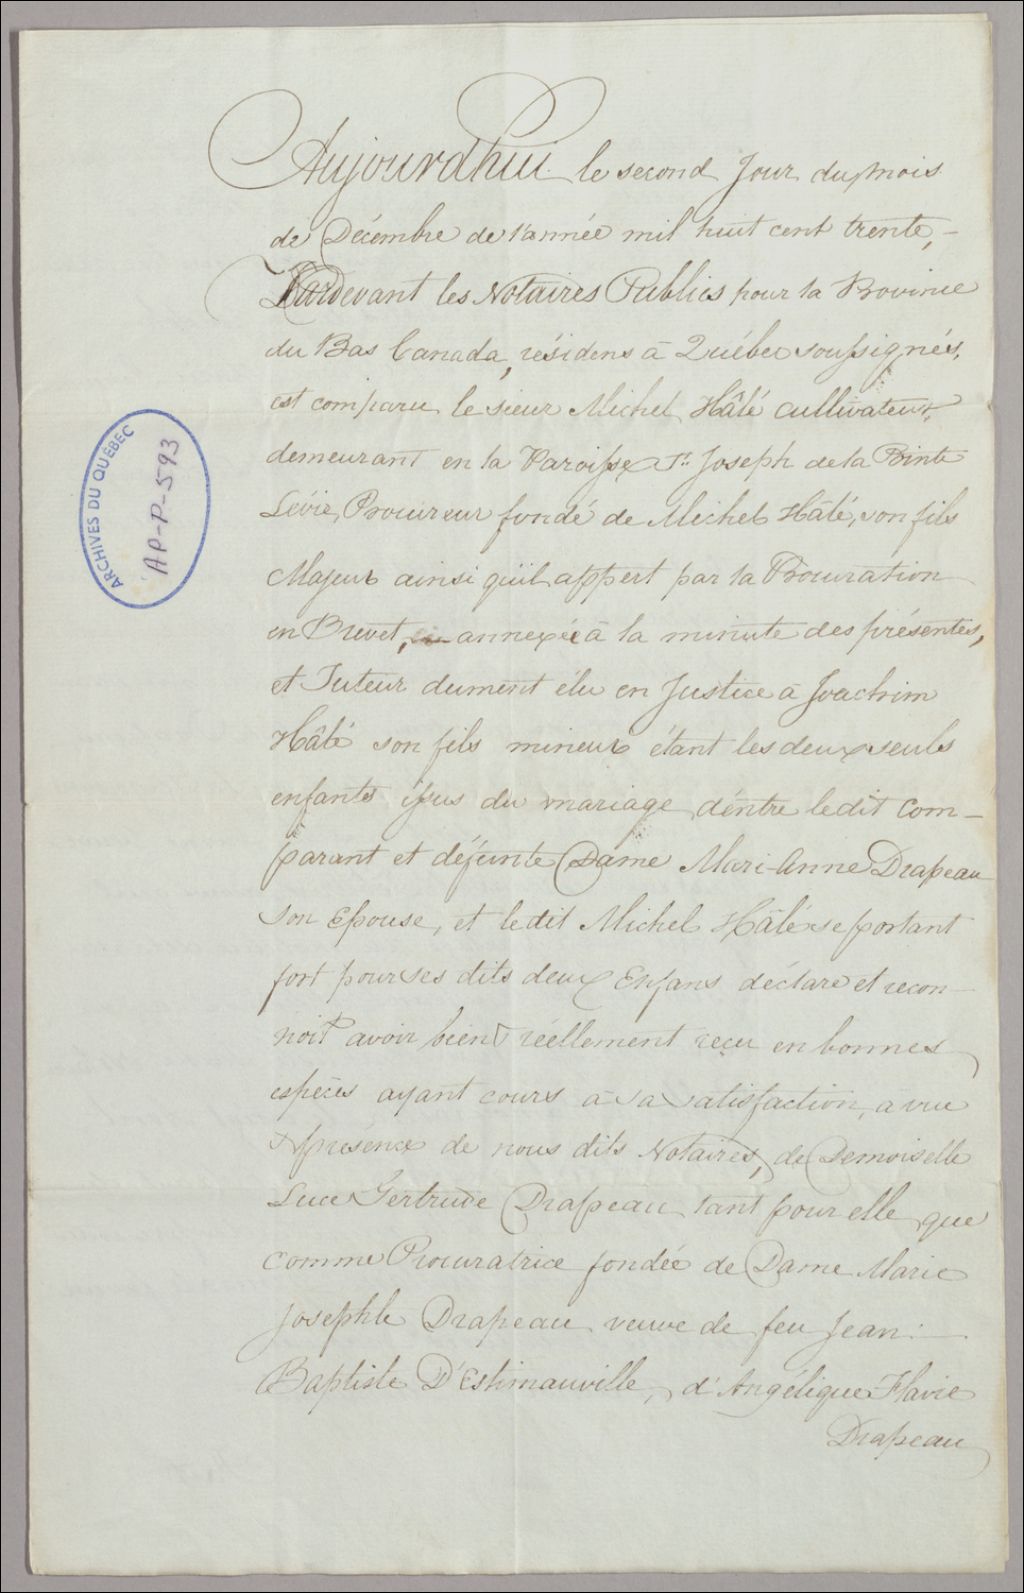 Aujourdhui le second Jour du mois
de Décembre de l'année mil huit cent trente, –
Pardevant les Notaires Publics pour la Province
du Bas Canada, résidens à Québec soussignés,
est comparu le sieur Michel Hâlé cultivateur,
demeurant en la Paroisse St. Joseph de la Pointe
Lévie, Procureur fondé de Michel Hâlé, son fils
Majeur ainsi qu'il appert par la Procuration
en Brevet, annexée à la minute des présentes,
et Tuteur dument élu en Justice à Joachim
Hâlé son fils mineur étant les deux seuls
enfants issus du mariage d'entre ledit com–
parant et défunte Dame Marie-Anne Drapeau
son Epouse, et ledit Michel Hâlé se portant
fort pour ses dits deux Enfans déclare et recon–
noit avoir bien & réellement reçu en bonnes
espèces ayant cours à sa satisfaction, a vue
& présence de nous dits Notaires, de Demoiselle
Luce Gertrude Drapeau tant pour elle que
comme Procuratrice fondée de Dame Marie
Josephte Drapeau veuve de feu Jean
Baptiste D'Estimauville, d'Angélique Flavie
Drapeau
ARCHIVES DU QUÉBEC
AP-P-593